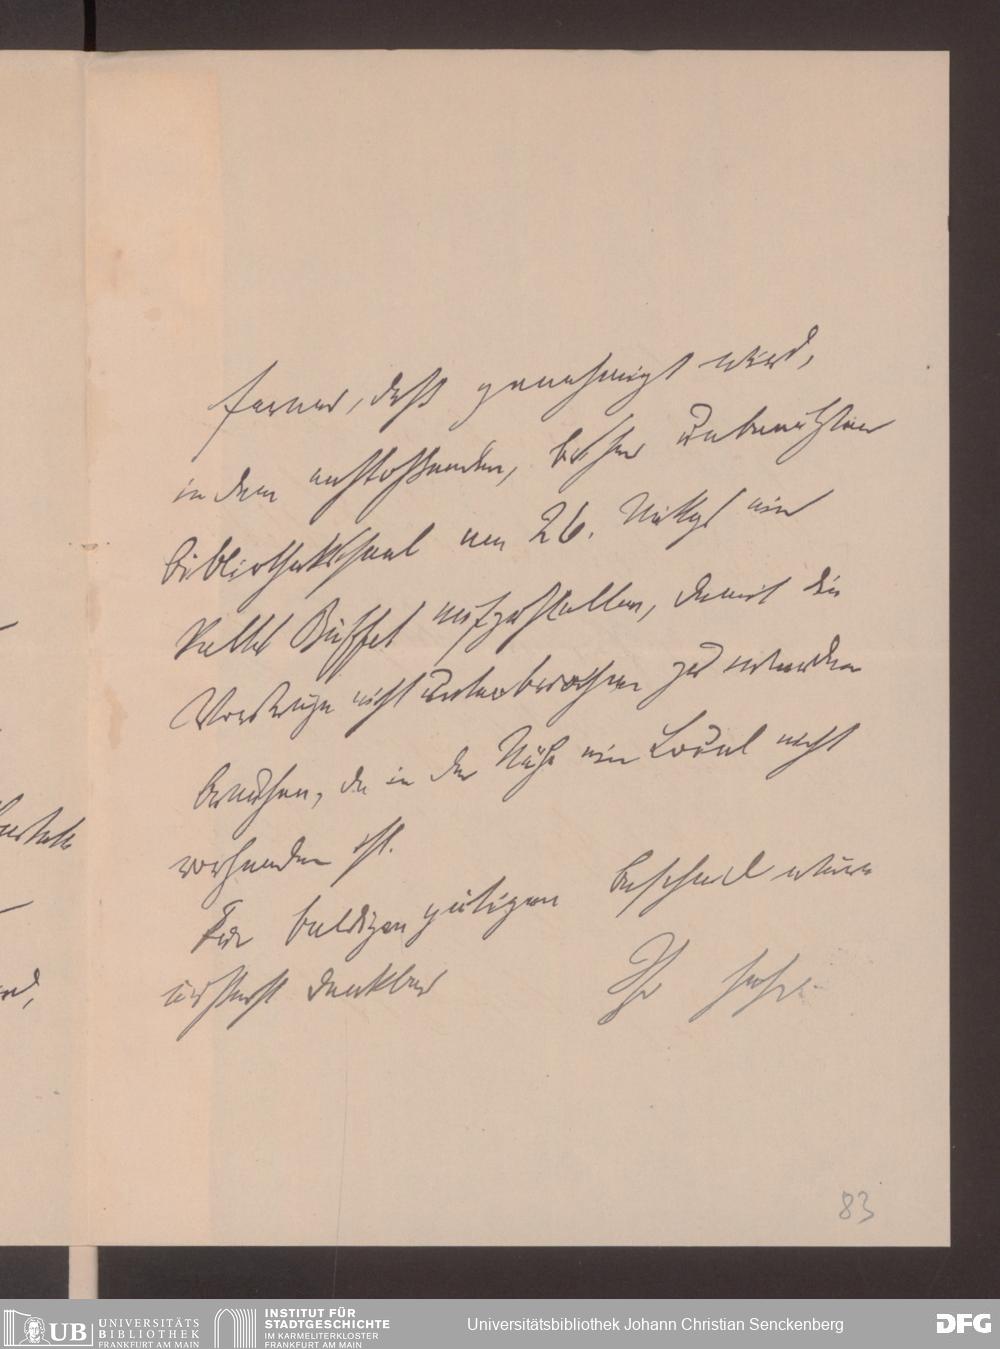 ferner, daß genehmigt wird,
in dem anstoßenden, bisher unbenutzten
Bibliotheksaal am 26. Mittags ein
kaltes Buffet aufzustellen, damit die
Vorträge nicht unterbrochen zu werden
brauchen, da in der Nähe ein Local nicht
vorhanden ist.
Für baldigen gütigen Bescheid wäre
äußerst dankbar
Ihr sehr
83
UB UNIVERSITÄTS
BIBLIOTHEK
FRANKFURT AM MAIN
INSTITUT FÜR
STADTGESCHICHTE
IM KARMELITERKLOSTER
FRANKFURT AM MAIN
Universitätsbibliothek Johann Christian Senckenberg
DFG